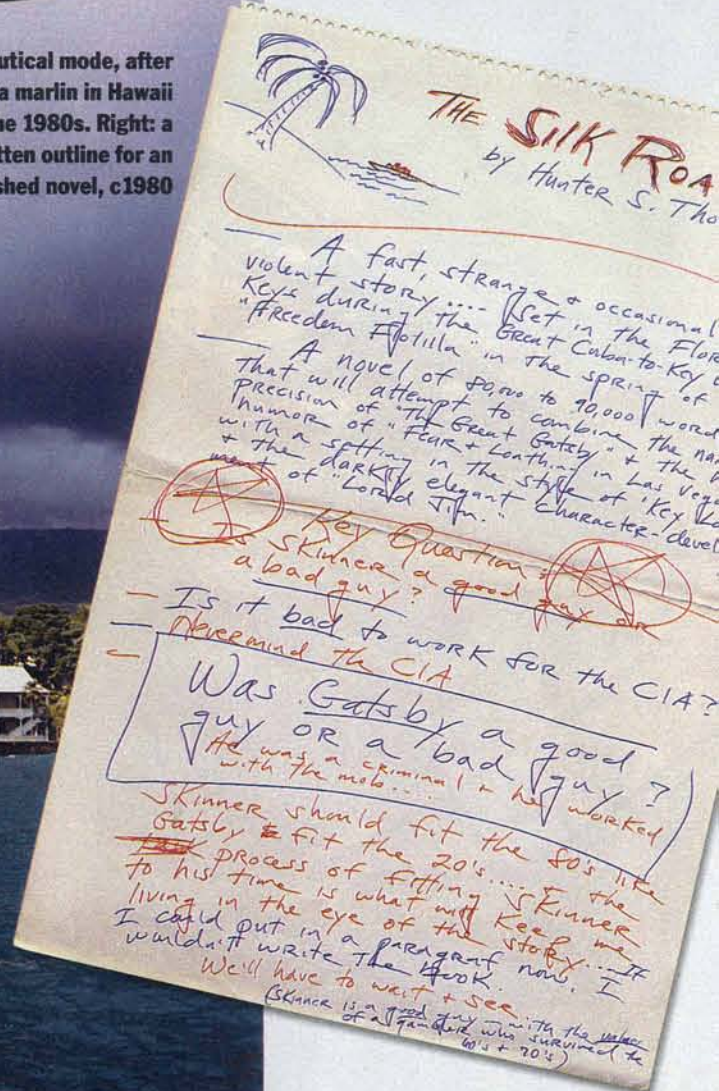 utical mode, after
a marlin in Hawaii
he 1980s. Right: a
tten outline for an
shed novel, c1980
THE SILK ROA
by Hunter S. Tho
— A fast, strange + occasional
violent story.... Set in the Flor
Keys during the Great Cuba-to-Key W
"Freedom Flotilla" in the spring of
— A novel of 80,000 to 90,000 word
that will attempt to combine the nar
precision of "The Great Gatsby" + the
humor of "Fear + Loathing in Las Vega
with a setting in the style of 'Key La
+ the darkly elegant character-devel
ment of "Lord Jim."
Key Question:
— Is Skinner a good guy or
a bad guy?
— Is it bad to work for the CIA?
— Nevermind the CIA
Was Gatsby a good
guy OR a bad guy?
He was a criminal + he worked
with the mob...
Skinner should fit the 80's like
Gatsby fit the 20's.... + the
process of fitting Skinner
to his time is what will keep me
living in the eye of the story.... If
I could put in a paragraf now, I
wouldn't write the book.
We'll have to wait + see
(Skinner is a good guy — with the values
of a gambler who survived the
60's + 70's)